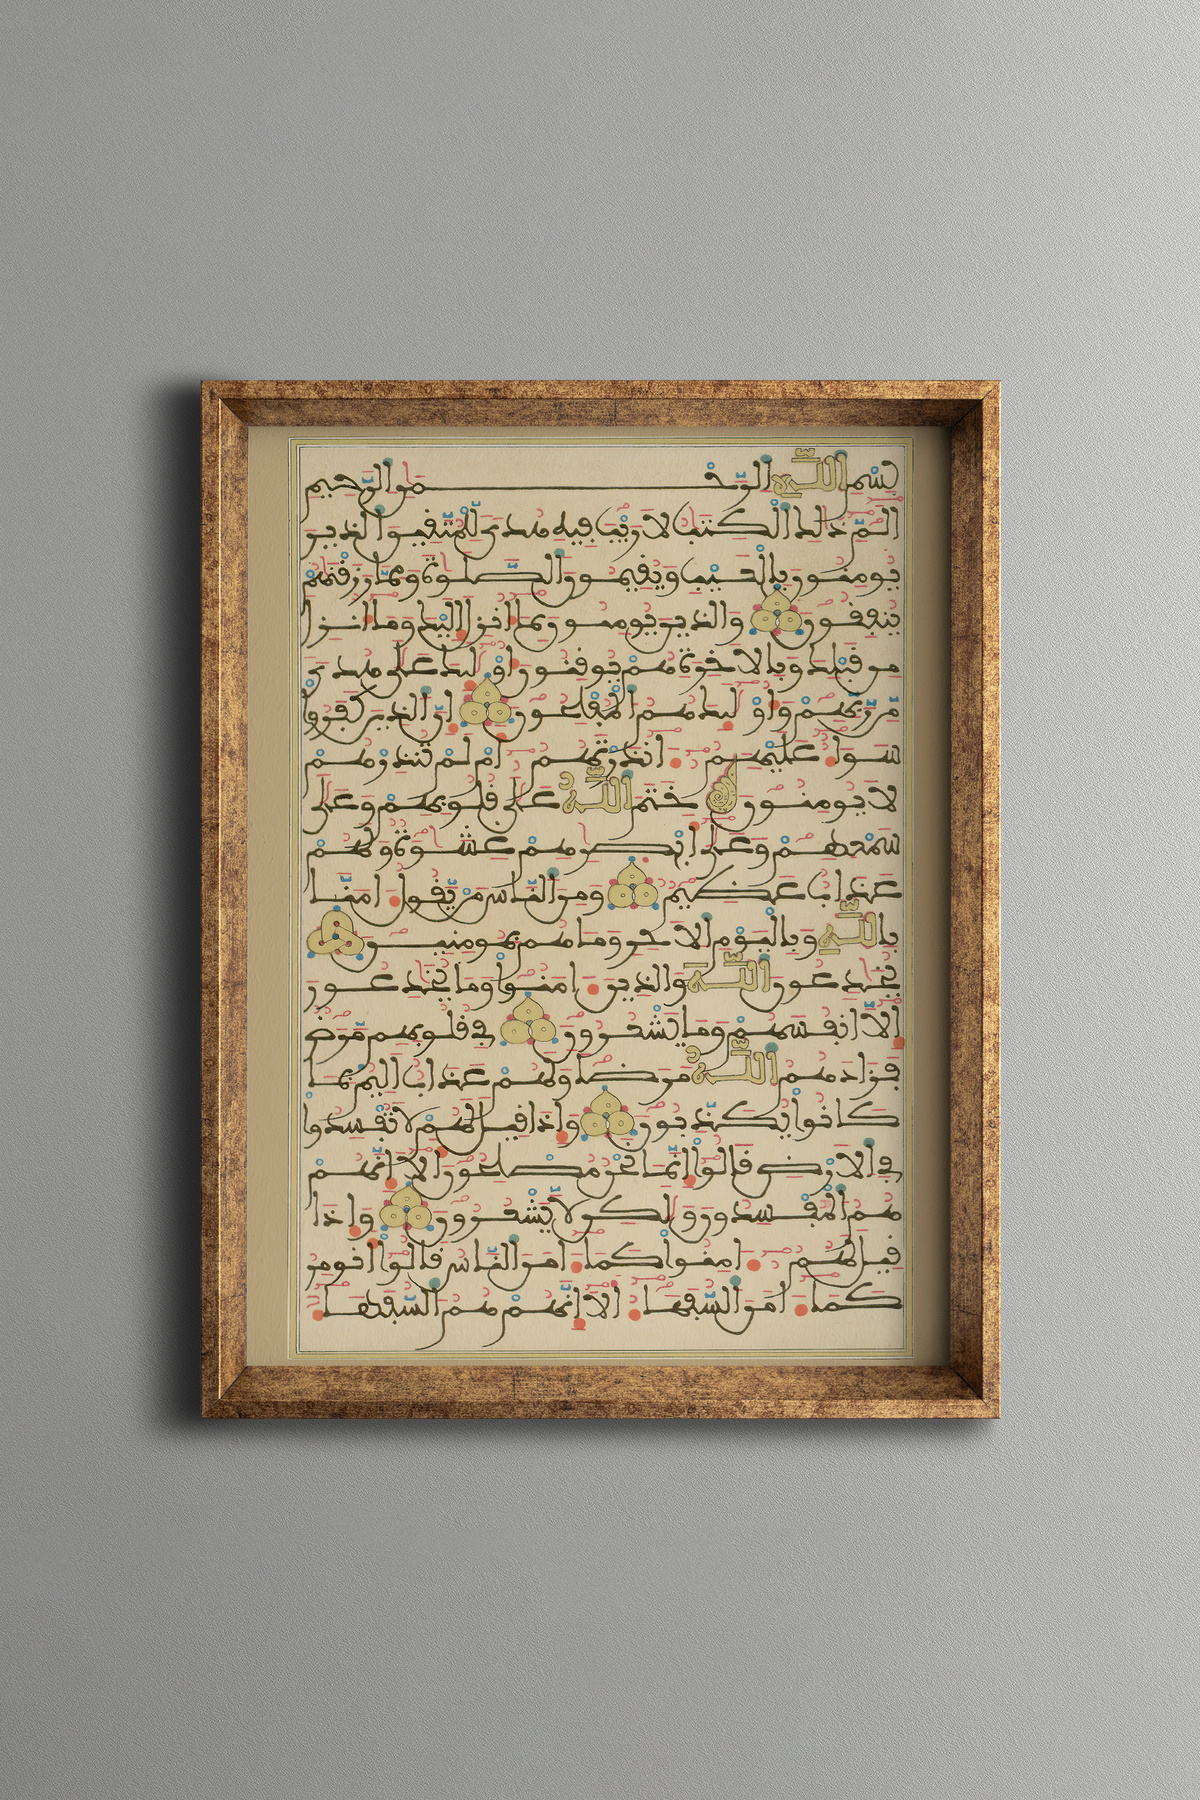 بسم الله الرحمن الرحيم
الم ذلك الكتب لا ريب فيه هدى للمتقين الذين
يومنون بالغيب ويقيمون الصلوة ومما رزقنهم
ينفقون والذين يومنون بما انزل اليك وما انزل
من قبلك وبالاخرة هم يوقنون اوليك على هدى
من ربهم واوليك هم المفلحون ان الذين كفروا
سواء عليهم ءانذرتهم ام لم تنذرهم
لا يومنون ختم الله على قلوبهم وعلى
سمعهم وعلى ابصرهم غشوة ولهم
عذاب عظيم ومن الناس من يقول ءامنا
بالله وباليوم الاخر وما هم بمومنين
يخدعون الله والذين ءامنوا وما يخدعون
الا انفسهم وما يشعرون في قلوبهم مرض
فزادهم الله مرضا ولهم عذاب اليم بما
كانوا يكذبون واذا قيل لهم لا تفسدوا
في الارض قالوا انما نحن مصلحون الا انهم
هم المفسدون ولكن لا يشعرون واذا
قيل لهم ءامنوا كما ءامن الناس قالوا انومن
كما ءامن السفهاء الا انهم هم السفهاء